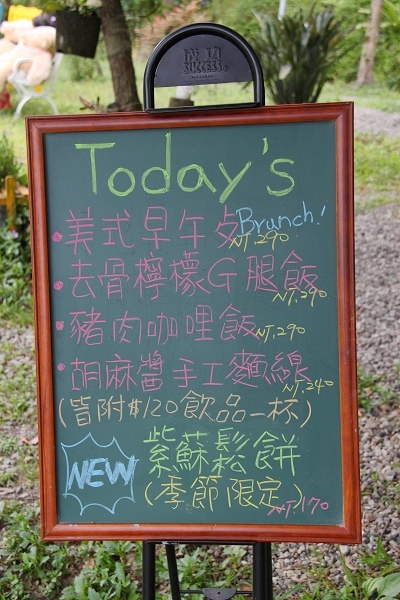 成功
SUCCESS
Today's
美式早午餐 Brunch!
NT.290
去骨檸檬G腿飯
NT.290
豬肉咖哩飯 NT.290
胡麻醬手工麵線
NT.240
(皆附$120飲品一杯)
NEW 紫蘇鬆餅
(季節限定)
NT.170